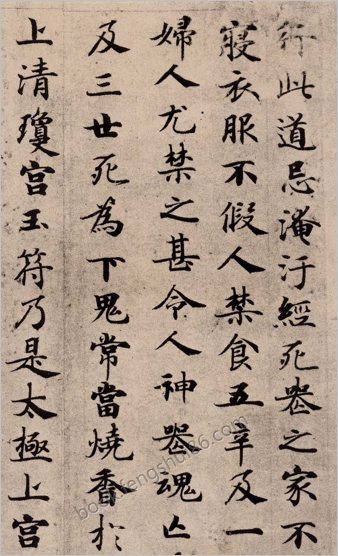 行此道忌淹汙經死喪之家不
寢衣服不假人禁食五辛及一
婦人尤禁之甚令人神喪魂亡
及三世死為下鬼常當燒香於
上清瓊宮玉符乃是太極上宮
book.fengshui86.com